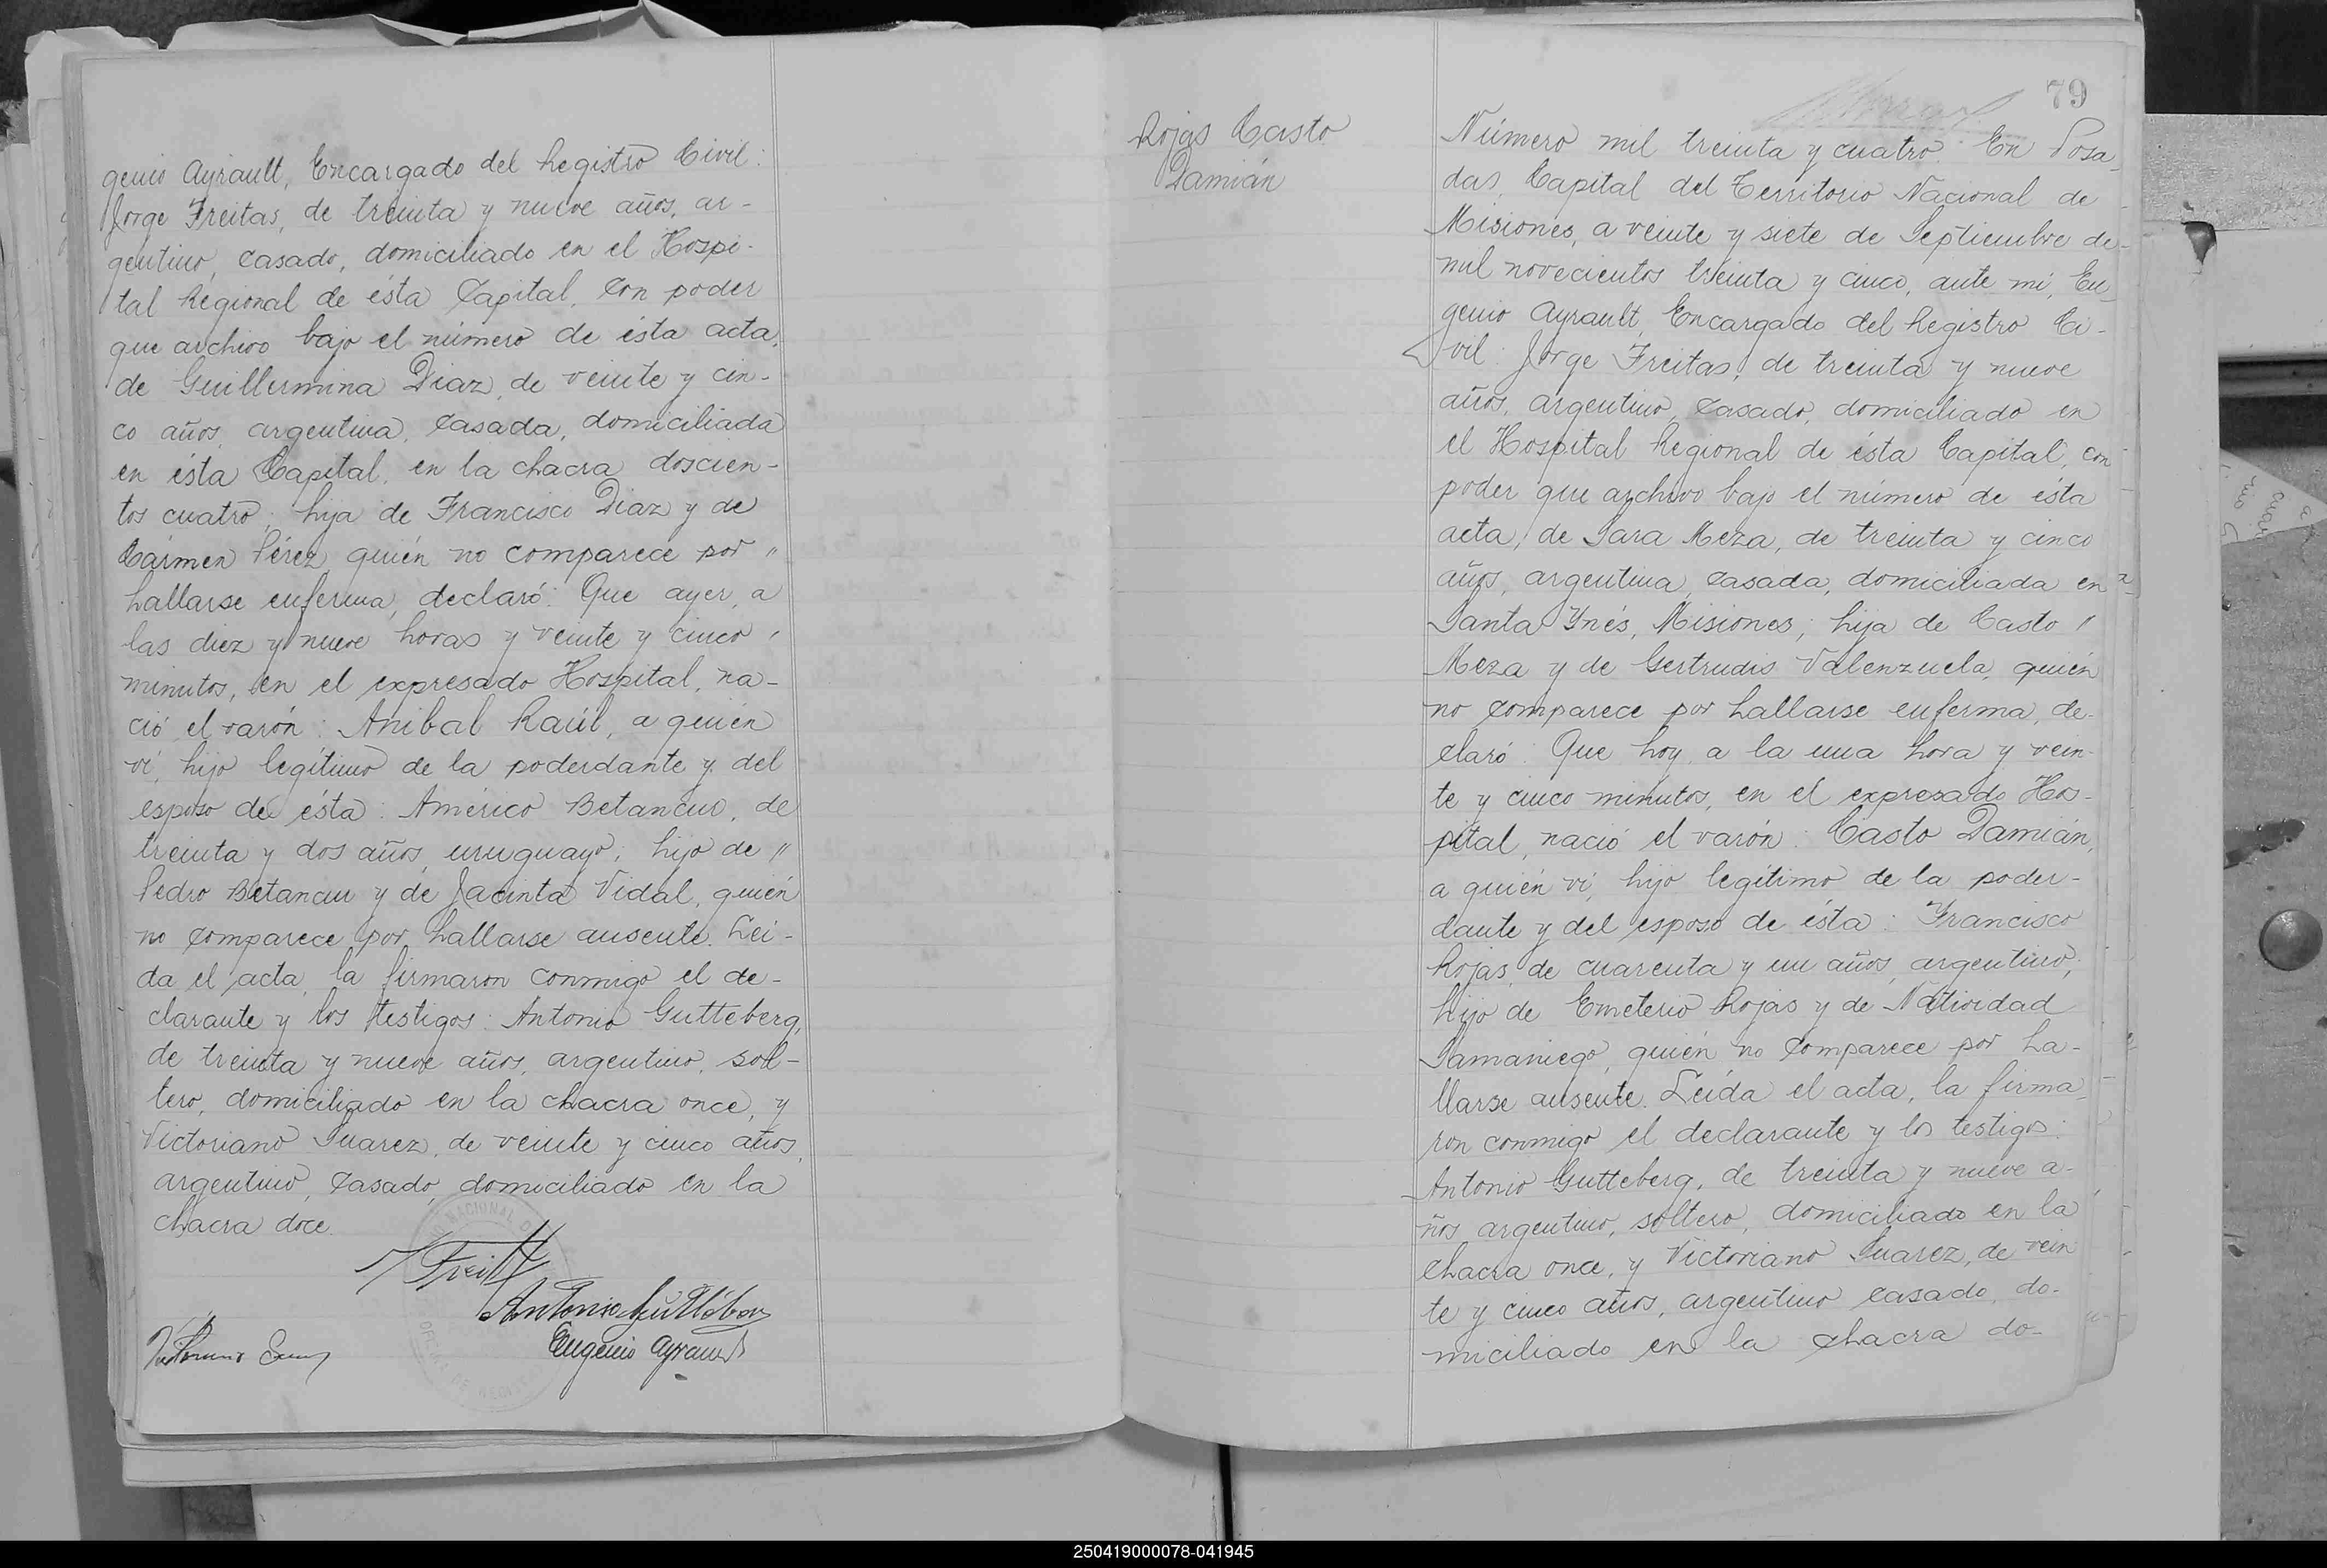 genio Ayrault, Encargado del Registro Civil:
Jorge Freitas, de treinta y nueve años, ar-
gentino, casado, domiciliado en el Hospi-
tal Regional de ésta Capital, con poder
que archivo bajo el número de ésta acta,
de Guillermina Diaz, de veinte y cin-
co años, argentina, casada, domiciliada
en ésta Capital, en la chacra doscien-
tos cuatro; hija de Francisco Diaz y de
Cármen Pérez, quién no comparece por "
hallarse enferma, declaró: Que ayer, a
las diez y nueve horas y veinte y cinco
minutos, en el expresado Hospital, na-
ció el varón: Anibal Raúl, a quién
ví, hijo legítimo de la poderdante y del
esposo de ésta: Américo Betancur, de
treinta y dos años, uruguayo; hijo de "
Pedro Betancur y de Jacinta Vidal, quién
no comparece por hallarse ausente. Leí-
da el acta, la firmaron conmigo el de-
clarante y los testigos: Antonio Gutteberg,
de treinta y nueve años, argentino, sol-
tero, domiciliado en la chacra once, y
Victoriano Suarez, de veinte y cinco años,
argentino, casado, domiciliado en la
chacra doce.
Eugenio Ayrault
79
Rojas Casto
Damián
Número mil treinta y cuatro. En Posa-
das, Capital del Territorio Nacional de
Misiones, a veinte y siete de Septiembre de
mil novecientos treinta y cinco, ante mí, Eu-
genio Ayrault, Encargado del Registro Ci-
vil: Jorge Freitas, de treinta y nueve
años, argentino, casado, domiciliado en
el Hospital Regional de ésta Capital, con
poder que archivo bajo el número de ésta
acta, de Sara Meza, de treinta y cinco
años, argentina, casada, domiciliada en
Santa Ynés, Misiones; hija de Casto "
Meza y de Gertrudis Valenzuela, quién
no comparece por hallarse enferma, de-
claró: Que hoy, a la una hora y vein-
te y cinco minutos, en el expresado Hos-
pital, nació el varón: Casto Damián,
a quién ví, hijo legítimo de la poder-
dante y del esposo de ésta: Francisco
Rojas, de cuarenta y un años, argentino;
hijo de Emeterio Rojas y de Natividad
Samaniego, quién no comparece por ha-
llarse ausente. Leída el acta, la firma-
ron conmigo el declarante y los testigos:
Antonio Gutteberg, de treinta y nueve a-
ños, argentino, soltero, domiciliado en la
chacra once, y Victoriano Suarez, de vein
te y cinco años, argentino casado, do-
miciliado en la chacra do-
250419000078-041945